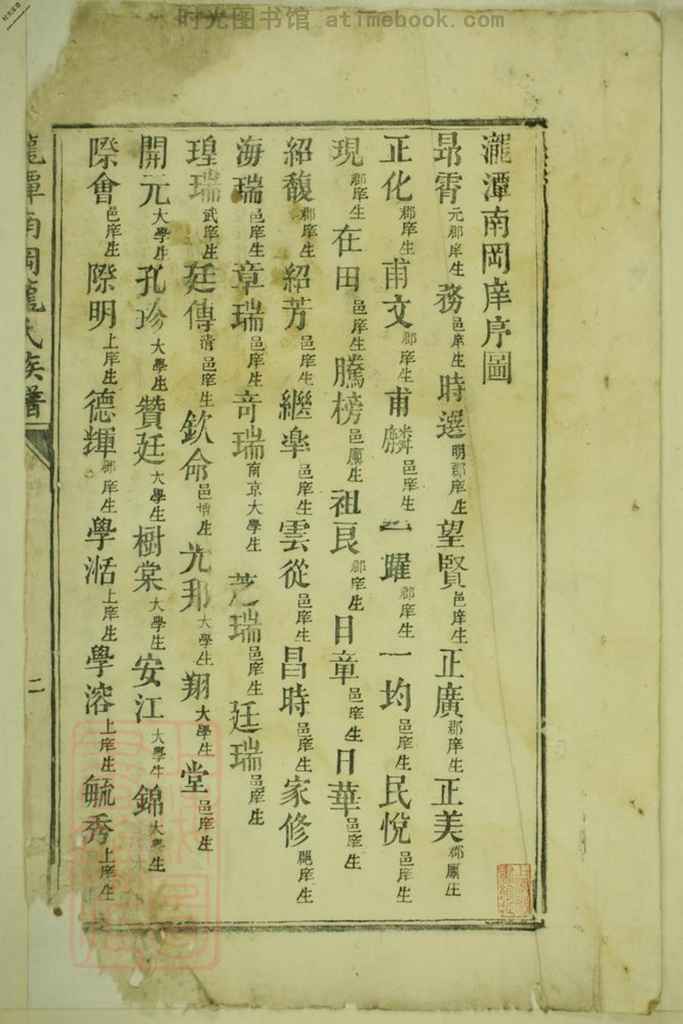 时光图书馆 atimebook.com
瀧潭南岡庠序圖
昻霄元郡庠生 務邑庠生 時選明郡庠生 望賢邑庠生 正廣郡庠生 正美郡廩生
正化郡庠生 甫文郡庠生 甫麟邑庠生 一躍郡庠生 一均邑庠生 民悅邑庠生
現郡庠生 在田邑庠生 騰榜邑廩生 祖良郡庠生 日章邑庠生 日華邑庠生
紹馥郡庠生 紹芳邑庠生 繼邑庠生 雲從邑庠生 昌時邑庠生 家修庠生
海瑞邑庠生 章瑞邑庠生 奇瑞南京大學生 芝瑞邑庠生 廷瑞邑庠生
瑝瑞武庠生 廷傳清邑庠生 欽命邑增生 光邦大學生 翔大學生 堂邑庠生
開元大學生 孔珍大學生 贊廷大學生 樹棠大學生 安江大學生 錦大學生
際會邑庠生 際明上庠生 德輝郡庠生 學湉上庠生 學溶上庠生 毓秀上庠生
瀧潭南岡龍氏族譜
二